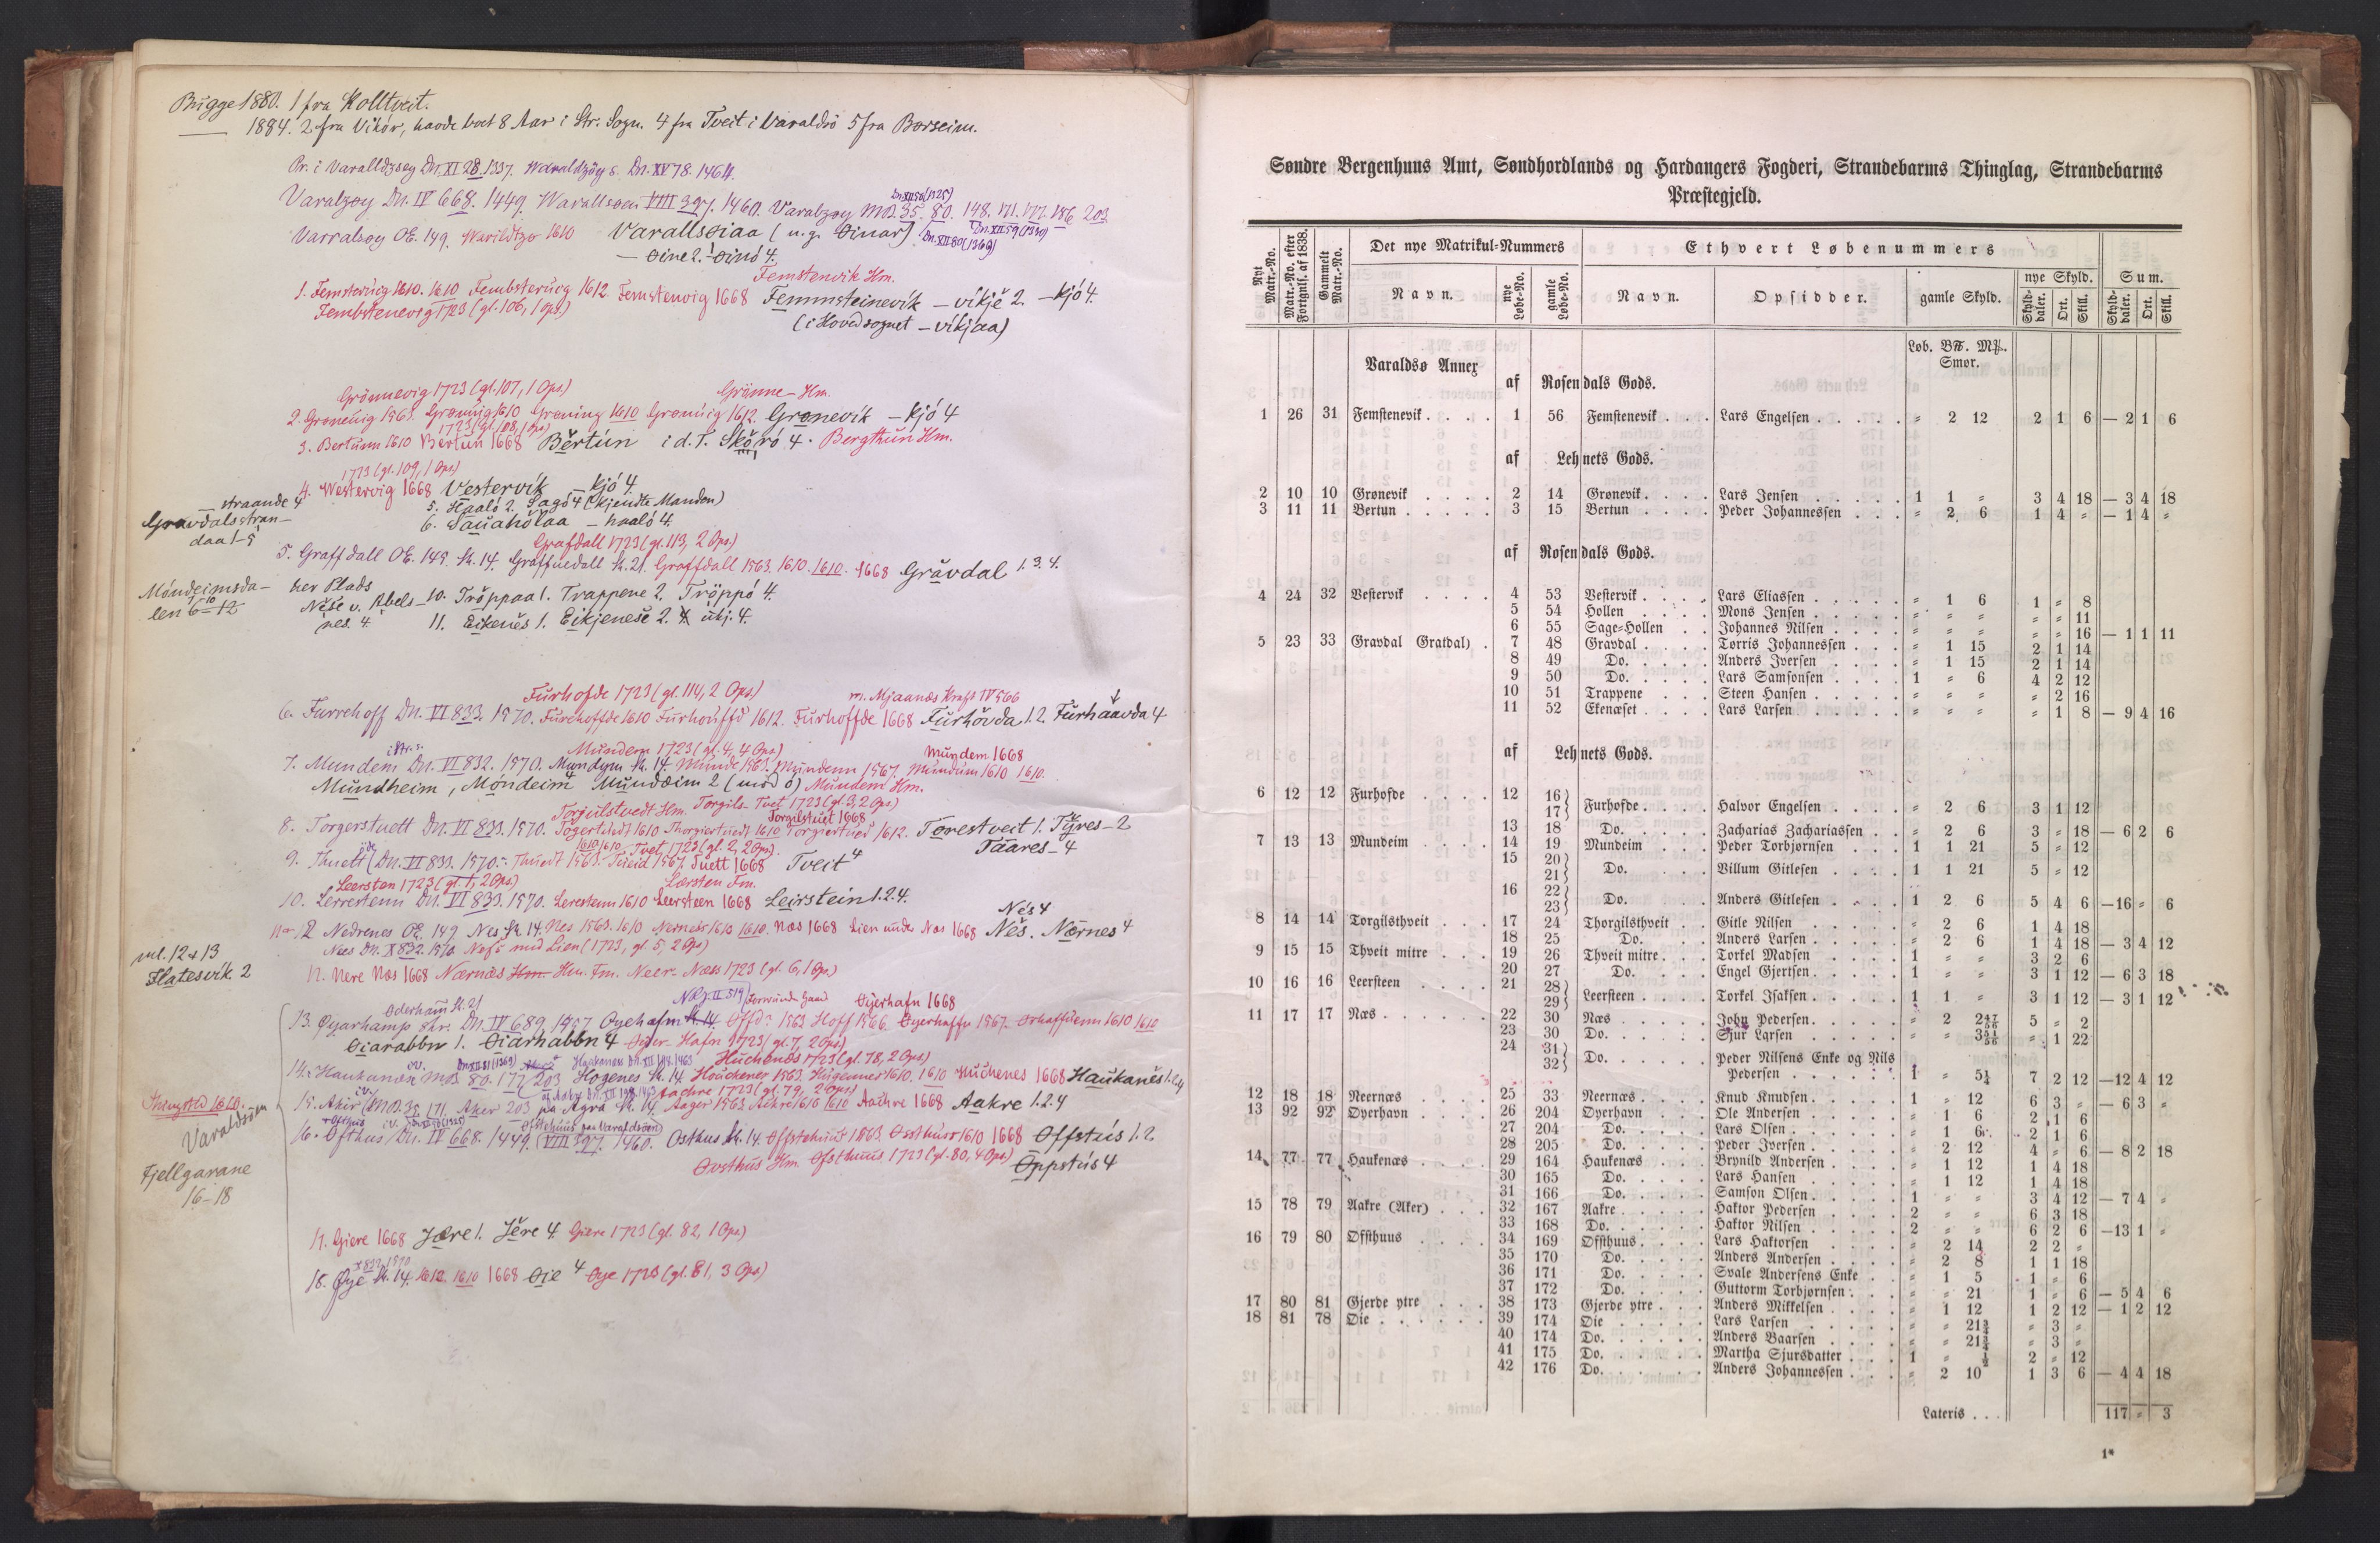 Bugge 1880. 1 fra Kolltveit.
1884. 2 fra Vikör, havde boet 8 Aar i Str. Sogn. 4 fra Tveit i Varaldsö 5 fra Borseim.
Pr. i Varalldzsey Dn. XI 28. 1337. Waraldzöy s. Dn. XV 78. 1464.
Dn. XII 56 (1325)
Varalzøy Dn. IV 668. 1449. Warallsøen VIII 397. 1460. Varalzøy MB. 35. 80. 148. 171. 177. 186 203
Varralsøy OE. 149. Warildtzø 1610 Varallsøiaa (u.g. Øinar) Dn. XII 80 (1369) Dn. XII 59 (1330)
— øine 2. — øinó 4.
Femstenvik Hm.
1. Femsteruig 1610. 1610 Fembsteruig 1612 Femstenvig 1668 Femmsteinevik — vikje 2. — kjó 4.
Fembstenevig 1723 (gl. 106, 1 Ops.) (i Hovedsognet — vikjaa)
Grönnevig 1723 (gl. 107, 1 Ops.) Grönne— Hm.
2. Groneuig 1563. Gronuig 1610 Groning 1610 Gronuig 1612. Grønevik — kjó 4
1723 (gl. 108, 1 Ops)
3. Bertunn 1610 Bertun 1668 Bertún i d. T. Skóró 4. Bergthun Hm.
1723 (gl. 109, 1 Ops.)
4. Westervig 1668 Vestervik — kjó 4
— straande 4 5. Haaló 2. Sagó 4 (kjendte Manden)
Gravdalsstran— 6. Sauahólaa — haaló 4.
daa 1–5 Grafdall 1723 (gl. 113, 2 Ops.)
5. Graffdall OE. 149. St. 14. Graffuedall St. 21. Graffdall 1563. 1610. 1610. 1668 Gravdal 1. 3. 4.
Móndeimsda— her Plads
len 6–12 Nese v. Abels— 10. Tröppaa 1. Trappene 2. Tröppó 4.
nes. 4. 11. Eikenes 1. Eikjenese 2. 4 utj. 4.
Furhofde 1723 (gl. 114, 2 Ops.) m. Mjaanæs Kraft IV 566
6. Furrehoff Dn. VI 833. 1570. Furehoffde 1610 Furhouffd 1612. Furhoffde 1668 Furhóvda 1. 2. Furhaavda 4
Mundem 1723 (gl. 4, 4 Ops.) Mundem 1668
7. Mundem Dn. VI 832. 1570. Mundym St. 14. Munde 1563. Mundenn 1567. Mundum 1610 1610.
Mundheim, Móndeim 4 Mundeim 2 (mod ó) Mundem Hm.
Torgiulstuedt Hm. Torgils-Tvet 1723 (gl. 3, 2 Ops.)
Torgilstuet 1668
8. Torgerstuett Dn. VI 833. 1570. Togertuedt 1610 Thorgiertuedt 1610 Torgiertued 1612. Torestveit 1. Tyres— 2
1610 1610. Tvet 1723 (gl. 2, 2 Ops.) Taares— 4
9. Thuett (Dn. VI 833. 1570. Thuedt 1563. Tueid 1567. Tuett 1668 Tveit 4
Leersten 1723 (gl. 1, 2 Ops.) Lersten Fm.
10. Lerrestenn Dn. VI 833. 1570. Lerestenn 1610 Leersteen 1668 Leirstein 1. 2. 4.
Nés 4
11 or 12 Nedrenes OE. 149 Nes. St. 14. Nes 1563. 1610 Nernes 1610 1610. Næs 1668 Lien under Næs 1668 Nés. Nærnes 4
ml. 12 & 13 Nees Dn. X 832. 1570. Næss med Lien (1723, gl. 5, 2 Ops)
Flatesvik. 2 12. Nere Næs 1668 Nærnæs Hm. Hm. Fm. Neer-Næss 1723 (gl. 6, 1 Ops)
Øderham St. 21 NRJ. II 519 Øyerhafn 1668
13. Øyarhamp skr. Dn. IV 689 1457 Øyehafm St. 14. Offd 1563 Hoff 1566. Øyerhaffn 1567. Orhaffdenn 1610 1610
Øiarabbn 1. Øiarhabbn 4 Øyer-Hafn 1723 (gl. 7, 2 Ops.)
Huchenæs 1723 (gl. 78, 2 Ops.)
14. Haukanæn MB 80. 177. 203 Hogenes St. 14. Houckenes 1563. Hugennes 1610. 1610 Huchenes 1668 Haukanés 1. 2. 4
Aachre 1723 (gl. 79, 2 Ops.)
Thingsted 1610. 15. Akir (MB. 35. 171. Aker 203 paa Agra St. 14. Aager 1563 Achre 1610 1610 Aachre 1668 Aakre 1. 2. 4
Varaldsöen
16. Ofthus Dn. IV 668. 1449. (VIII 397. 1460. Osthus St. 14. Offstehunt 1563. Ossthuss 1610 1668 Offstús 1. 2.
Fjellgarane Ovsthus Hm. Ofsthuus 1723 (gl. 80, 4 Ops.) Øppstús 4
16–18
17. Giere 1668 Jære 1. Jére 4 Giære 1723 (gl. 82, 1 Ops.)
X 832, 1570
18. Øye St. 14. 1612. 1610 1668 Øie 4 Øye 1723 (gl. 81, 3 Ops.)
Søndre Bergenhuus Amt, Søndhordlands og Hardangers Fogderi, Strandebarms Thinglag, Strandebarms
Præstegjeld.
Nyt Matr.-No. Matr.-No. efter Fortgnlf. af 1838. Gammelt Matr.-No. Det nye Matrikul-Nummers Ethvert Løbenummers
Navn. nye Løbe-No. gamle Løbe-No. Navn. Opsidder. gamle Skyld. nye Skyld. Sum.
Skylddaler. Ort. Skill. Skylddaler. Ort. Skill.
Løb. B℔. M℔. Smør.
Varaldsø Annex
af Rosendals Gods.
1 26 31 Femstenevik. . . . 1 56 Femstenevik . . . Lars Engelsen . . . . . " 2 12 2 1 6 — 2 1 6
af Lehnets Gods.
2 10 10 Grønevik . . . . 2 14 Grønevik. . . . Lars Jensen . . . . . 1 1 " 3 4 18 — 3 4 18
3 11 11 Bertun . . . . . 3 15 Bertun . . . . Peder Johannessen . . . " 2 6 1 4 " — 1 4 "
af Rosendals Gods.
4 24 32 Vestervik . . . . 4 53 Vestervik. . . . Lars Eliassen . . . . . " 1 6 1 " 8
5 54 Hollen . . . . Mons Jensen . . . . . " " " " " 11
6 55 Sage-Hollen . . Johannes Nilsen . . . . " " " " " 16 — 1 1 11
5 23 33 Gravdal Gratdal) . 7 48 Gravdal . . . . Torris Johannessen . . . " 1 15 2 1 14
8 49 Do. . . . . Anders Iversen . . . . " 1 15 2 1 14
9 50 Do. . . . . Lars Samsonsen . . . . 1 " 6 4 2 12
10 51 Trappene . . . Steen Hansen . . . . . " " " " 2 16
11 52 Ekenæset . . . . Lars Larsen . . . . . " " " " 1 8 — 9 4 16
af Lehnets Gods.
6 12 12 Furhofde . . . . 12 16} 17} Furhofde . . . . Halvor Engelsen . . . . " 2 6 3 1 12
13 18 Do. . . . . Zacharias Zachariassen . . " 2 6 3 " 18 — 6 2 6
7 13 13 Mundeim . . . . 14 19 Mundeim . . . Peder Torbjørnsen . . . 1 1 21 5 " 12
15 20} 21} Do. . . . . Villum Gitlesen . . . . 1 1 21 5 " 12
16 22} 23} Do. . . . . Anders Gitlesen . . . . 1 2 6 5 4 6 —16 " 6
8 14 14 Torgilsthveit . . . 17 24 Thorgilsthveit . . Gitle Nilsen . . . . . " 2 6 1 4 18
18 25 Do. . . . Anders Larsen . . . . . " 2 6 1 4 18 — 3 4 12
9 15 15 Thveit mitre . . . 19 26 Thveit mitre. . . Torkel Madsen . . . . 1 " " 3 2 6
20 27 Do. . . . Engel Gjertsen. . . . . 1 " " 3 1 12 — 6 3 18
10 16 16 Leersteen . . . . 21 28} 29} Leersteen . . . . Torkel Isaksen . . . . . 1 1 " 3 1 12 — 3 1 12
11 17 17 Næs . . . . . . 22 30 Næs . . . . . John Pedersen. . . . . " 2 2 47/56 5 " 2
23 30 Do. . . . . . Sjur Larsen . . . . . " " 3 51/56 " 1 22
24 31} 32} Do. . . . . . Peder Nilsens Enke og Nils
Pedersen . . . . . . 1 " 5¼ 7 2 12 —12 4 12
12 18 18 Neernæs . . . . 25 33 Neernæs . . . . Knud Knudsen . . . . . 1 " 12 6 3 " — 6 3 "
13 92 92 Øyerhavn . . . . 26 204 Øyerhavn . . . Ole Andersen . . . . . " 1 6 2 1 6
27 204 Do. . . . . Lars Olsen . . . . . . " 1 6 2 1 6
28 205 Do. . . . . Peder Iversen . . . . . " 2 12 4 " 6 — 8 2 18
14 77 77 Haukenæs . . . . 29 164 Haukenæs . . . Brynild Andersen . . . . " 1 12 1 4 18
30 165 Do. . . . . Lars Hansen . . . . . " 1 12 1 4 18
31 166 Do. . . . . Samson Olsen . . . . . 1 " " 3 4 12 — 7 4 "
15 78 79 Aakre (Aker) . . . 32 167 Aakre . . . . . Haktor Pedersen . . . . 2 " " 6 3 18
33 168 Do. . . . . . Haktor Nilsen . . . . . 2 " " 6 2 6 —13 1 "
16 79 80 Offthuus . . . . 34 169 Offthuus . . . . Lars Haktorsen . . . . " 2 14 2 2 "
35 170 Do. . . . . Anders Andersen . . . . " 2 8 1 1 18
36 171 Do. . . . . Svale Andersens Enke . . " 1 5 1 " 6
37 172 Do. . . . . Guttorm Torbjørnsen . . . " " 21 1 " 6 — 5 4 6
17 80 81 Gjerde ytre . . . 38 173 Gjerde ytre . . . Anders Mikkelsen . . . . " 1 12 1 2 12 — 1 2 12
18 81 78 Øie . . . . . . 39 174 Øie . . . . . Lars Larsen . . . . . " " 21¾ " 3 "
40 174 Do. . . . . . Anders Baarsen . . . . " " 21¾ " 3 "
41 175 Do. . . . . . Martha Sjursdatter . . . 1 " ½ 2 " 12
42 176 Do. . . . . . Anders Johannessen . . . " 2 10 1 3 6 — 4 4 18
Lateris . . . 117 " 3
1*